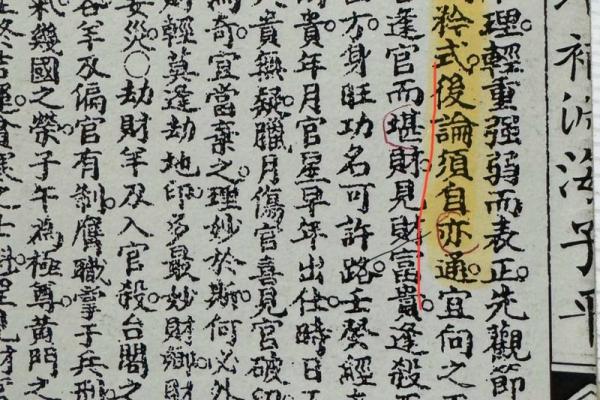 補淵海子平
理輕重強弱而表正。先觀節
矜式。後論須自亦通。宜向之
逢官而堪財。見財富貴。逢殺
方身旺功名可許。路壬癸經
貴年月官星。早年出仕。時日
貴無疑。臘月傷官喜見官。破印
奇宜當棄之。理妙於斯。何必外
財輕莫逢劫地。印多最妙財鄉。財
災〇劫財羊刃入官殺台閣之
谷羊刃偏官有制。膺職掌于兵刑
幾國之榮。子午為極尊。黃門之
運。貧寒之士